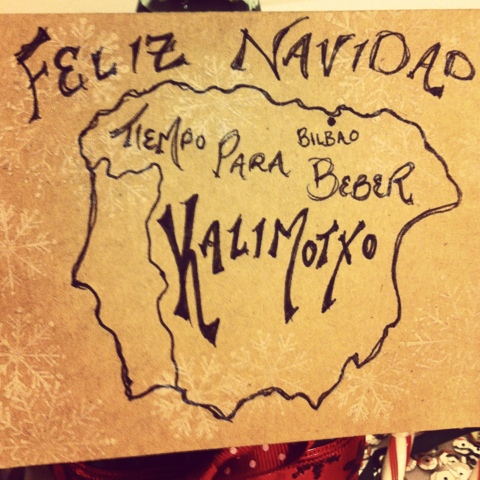 FELIZ NAVIDAD
BILBAO
TIEMPO PARA BEBER
KALIMOTXO